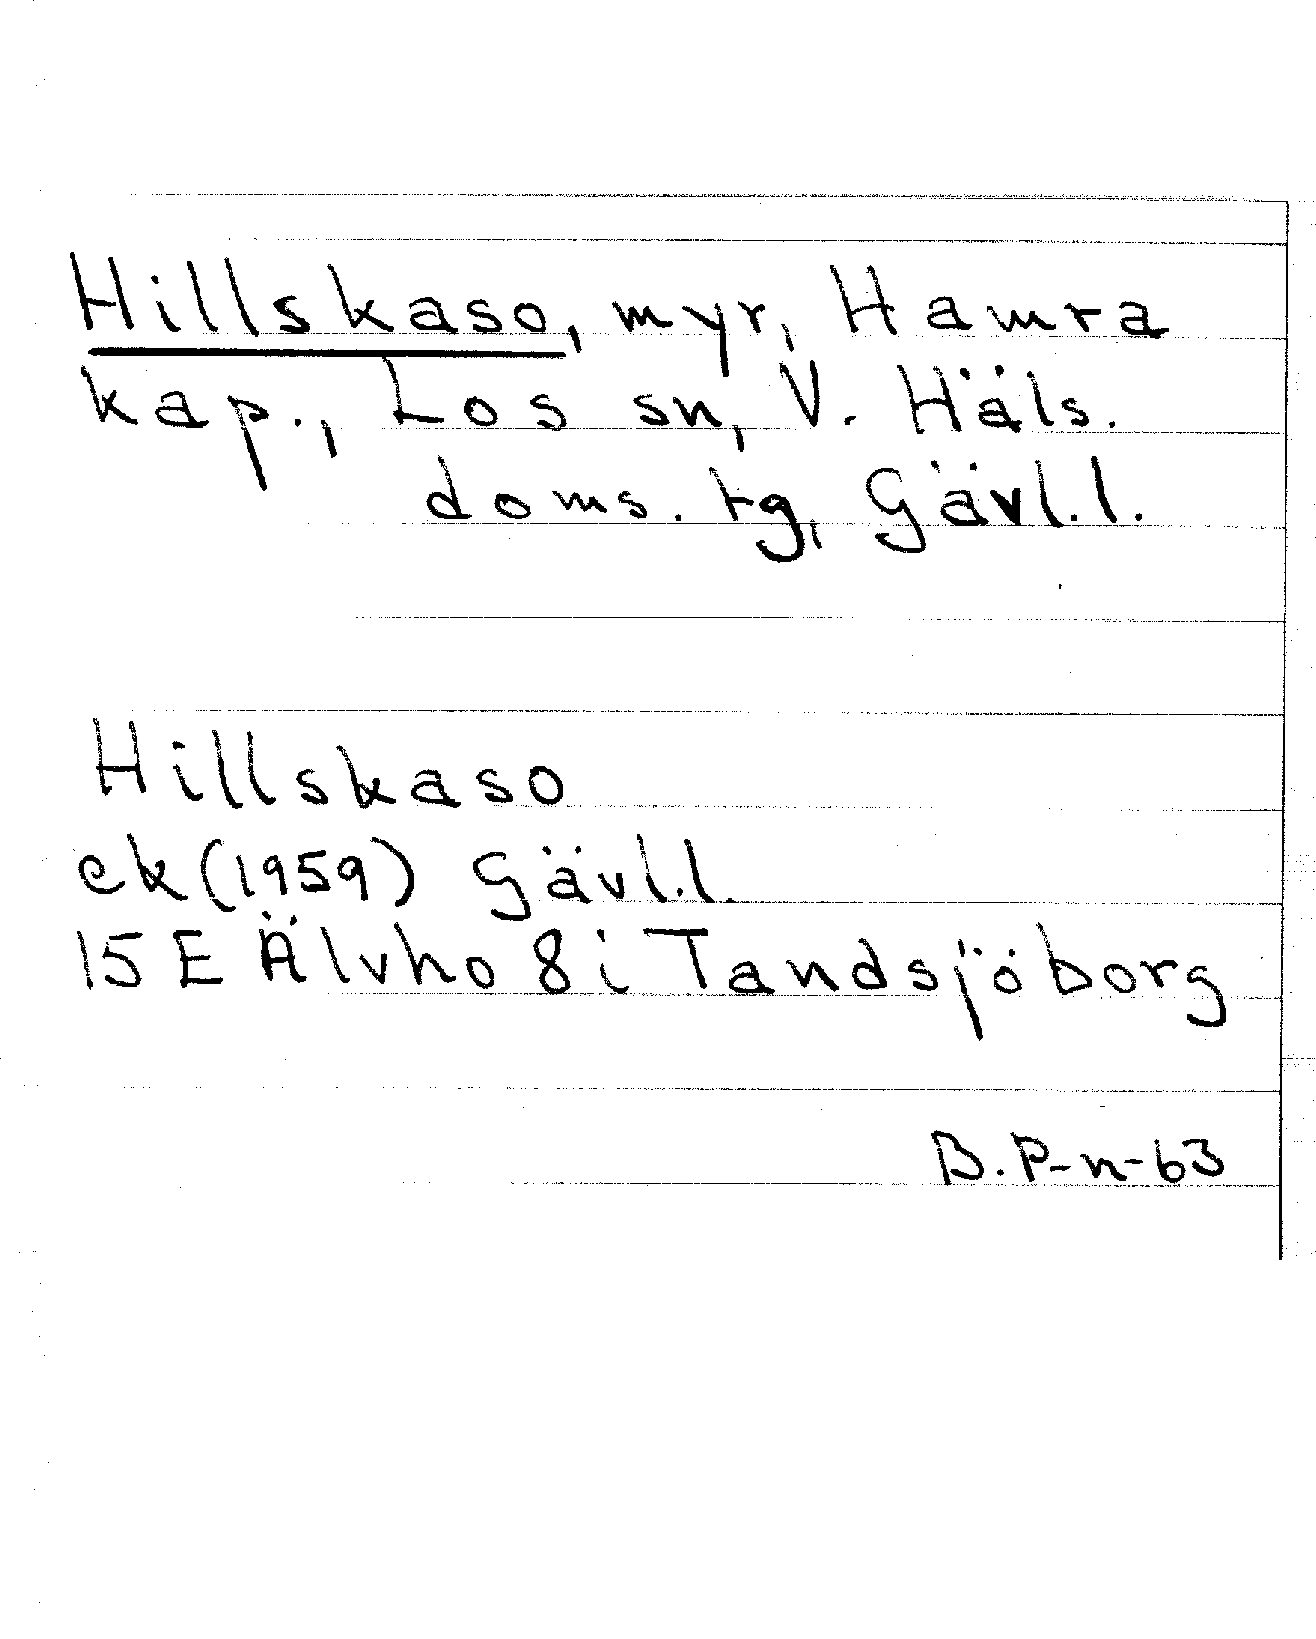 Hillskaso, myr, Hamra
kap., Los sn, V. Häls.
doms. tg, Gävl.l.
Hillskaso
ek (1959) Gävl.l.
15 E Älvho 8 i Tandsjöborg
B.P-n-63